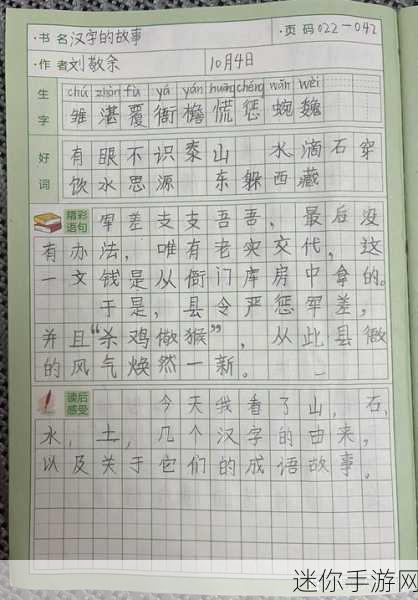 ·书名 汉字的故事 ·页码 022-042
·作者 刘敬余 10月4日
生字
chú zhàn fù yá yán huāng chéng wān wèi
雏 湛 覆 衙 檐 慌 惩 蜿 魏
好词
有眼不识泰山 水滴石穿
饮水思源 东躲西藏
精彩语句
军差支支吾吾,最后没
有办法,唯有老实交代,这
一文钱是从衙门库房中拿的。
于是,县令严惩军差,
并且“杀鸡儆猴”,从此县
的风气焕然一新。
读后感受
今天我看了山,石,
水,土,几个汉字的由来,
以及关于它们的成语故事。
迷你手游网